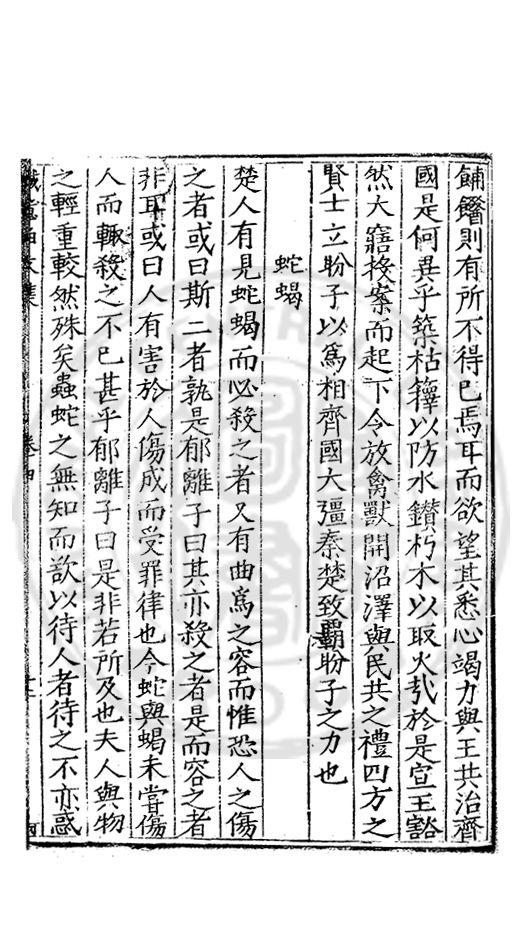 餔餟則有所不得已焉耳而欲望其悉心竭力與王共治齊
國是何異乎築枯籜以防水鑚朽木以取火哉於是宣王豁
然大寤投案而起下令放禽獸開沼澤與民共之禮四方之
賢士立盼子以爲相齊國大彊秦楚致霸盼子之力也
蛇蝎
楚人有見蛇蝎而必殺之者又有曲爲之容而惟恐人之傷
之者或曰斯二者孰是郁離子曰其亦殺之者是而容之者
非耳或曰人有害於人傷成而受罪律也今蛇與蝎未嘗傷
人而輙殺之不已甚乎郁離子曰是非若所及也夫人與物
之輕重較然殊矣蟲蛇之無知而欲以待人者待之不亦惑
卷四